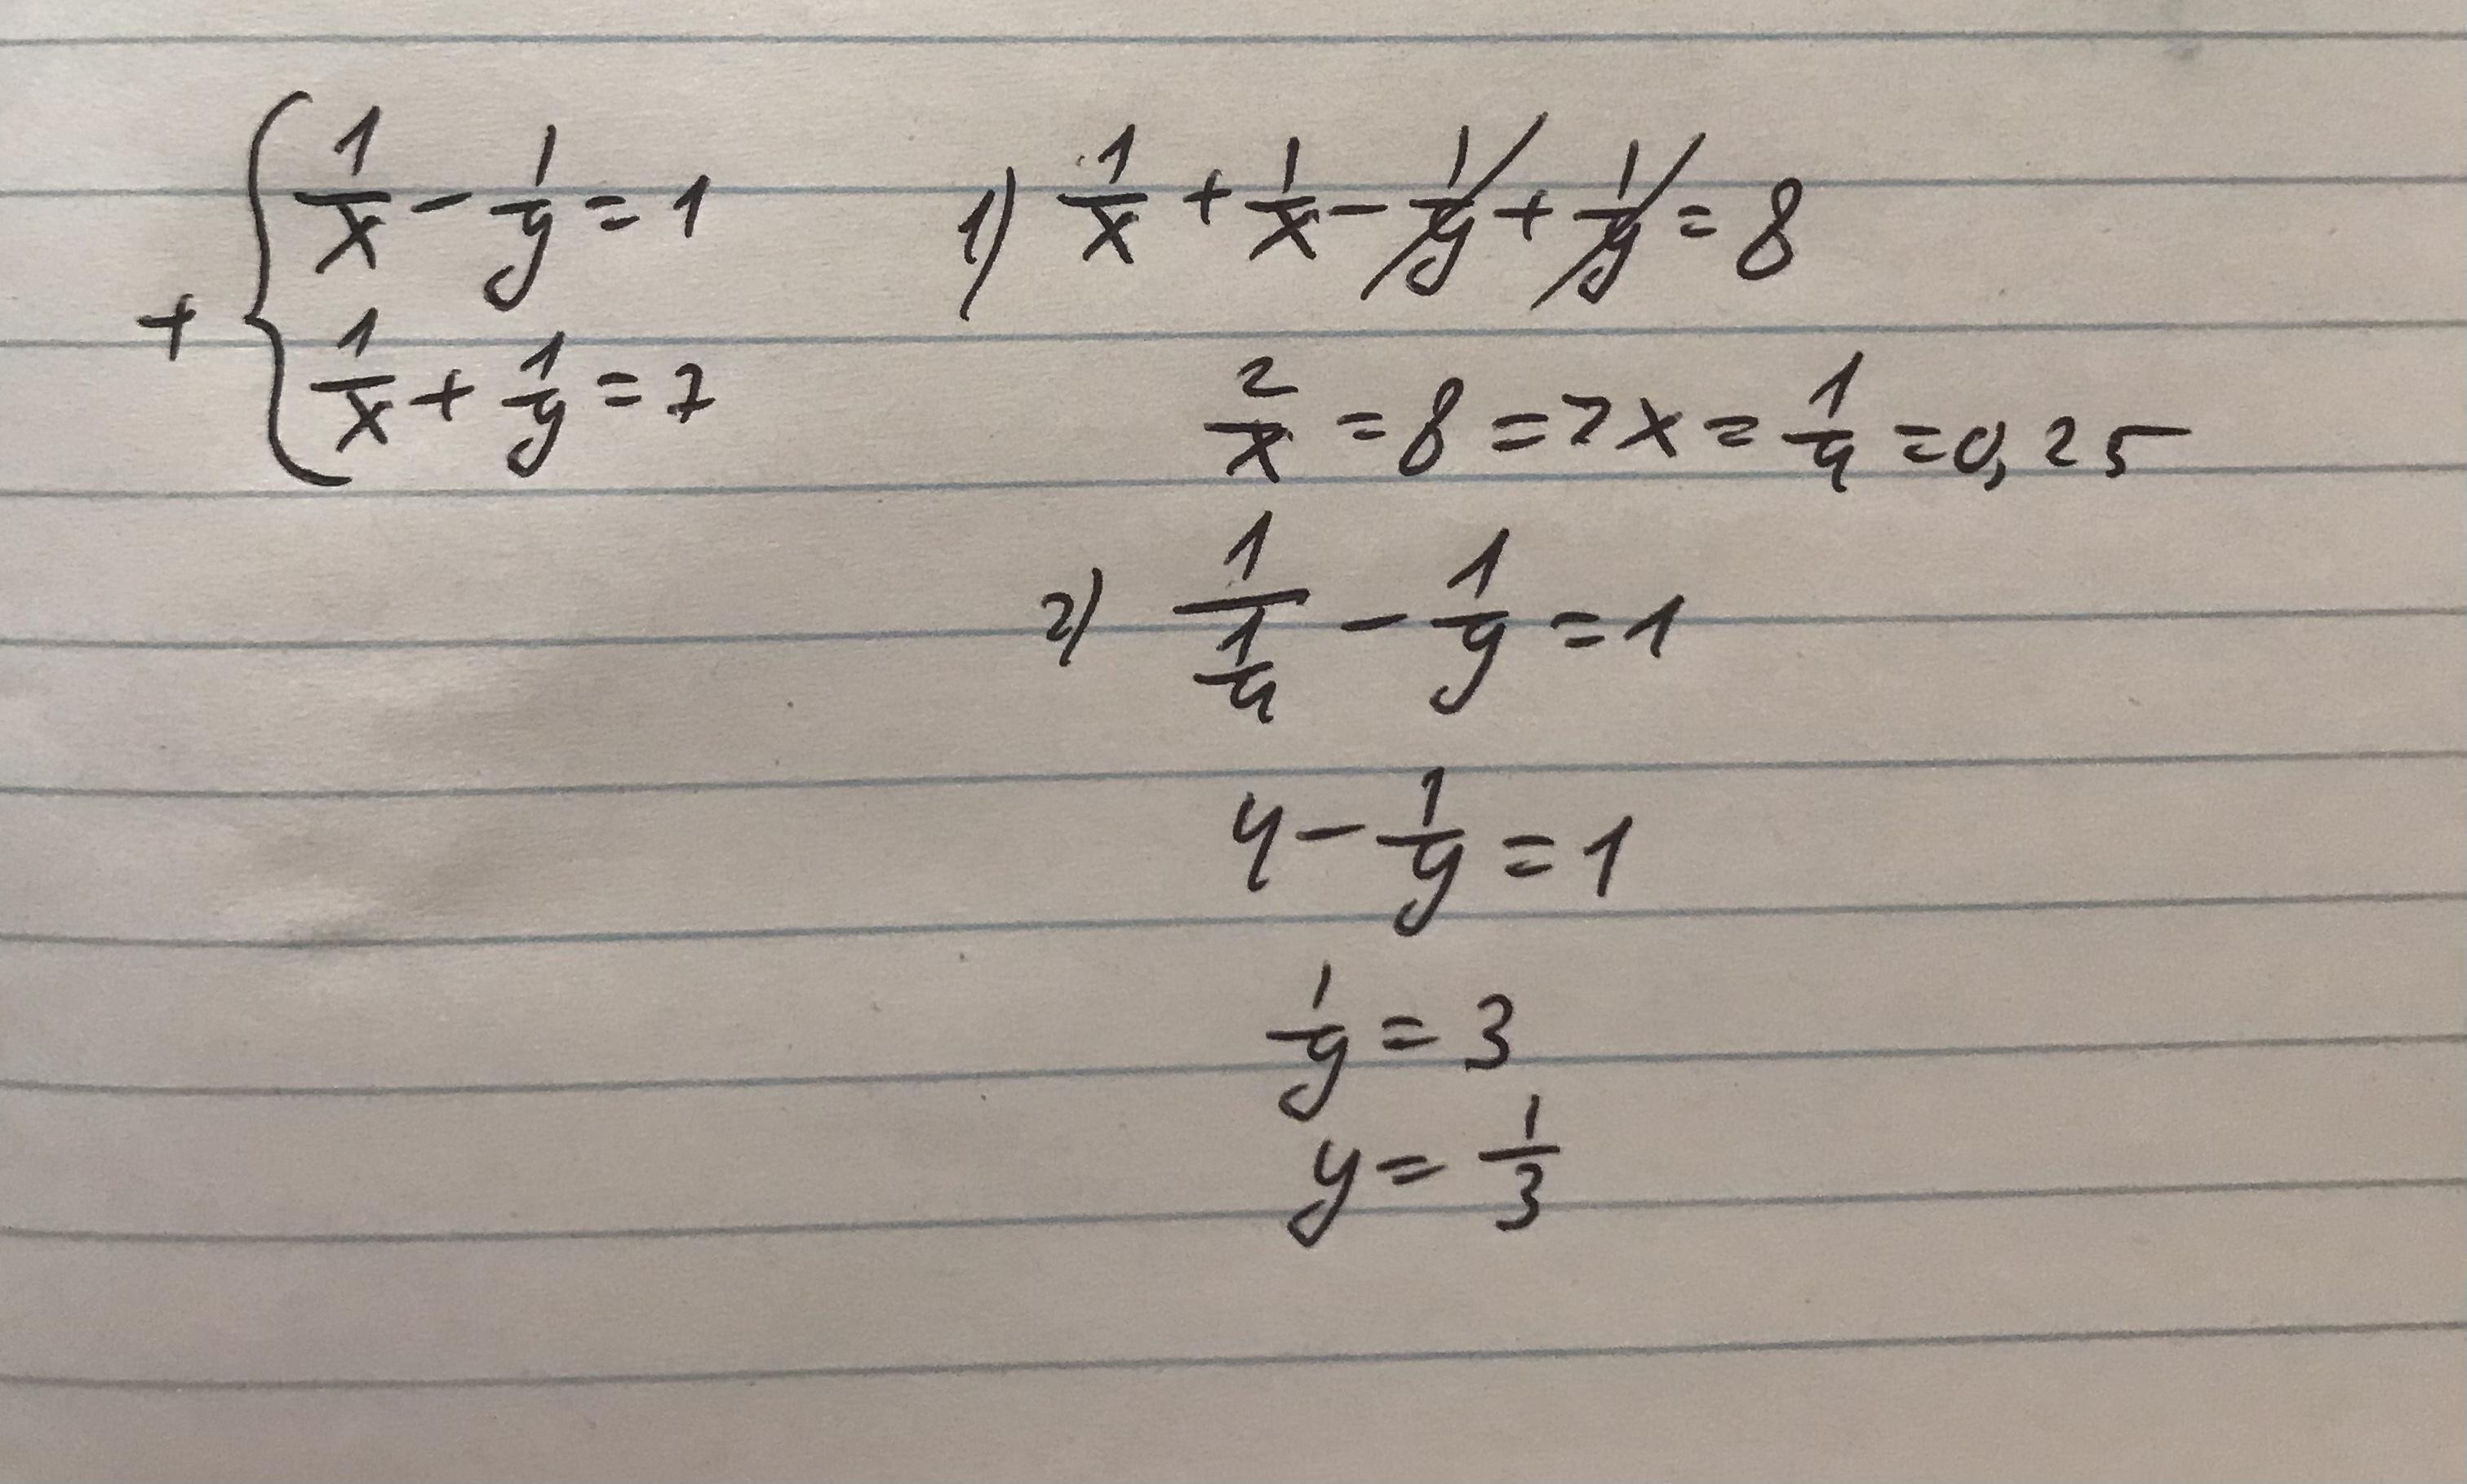 + { 1/x - 1/y = 1
1/x + 1/y = 7
1) 1/x + 1/x - 1/y + 1/y = 8
2/x = 8 => x = 1/4 = 0,25
2) 1/(1/4) - 1/y = 1
4 - 1/y = 1
1/y = 3
y = 1/3